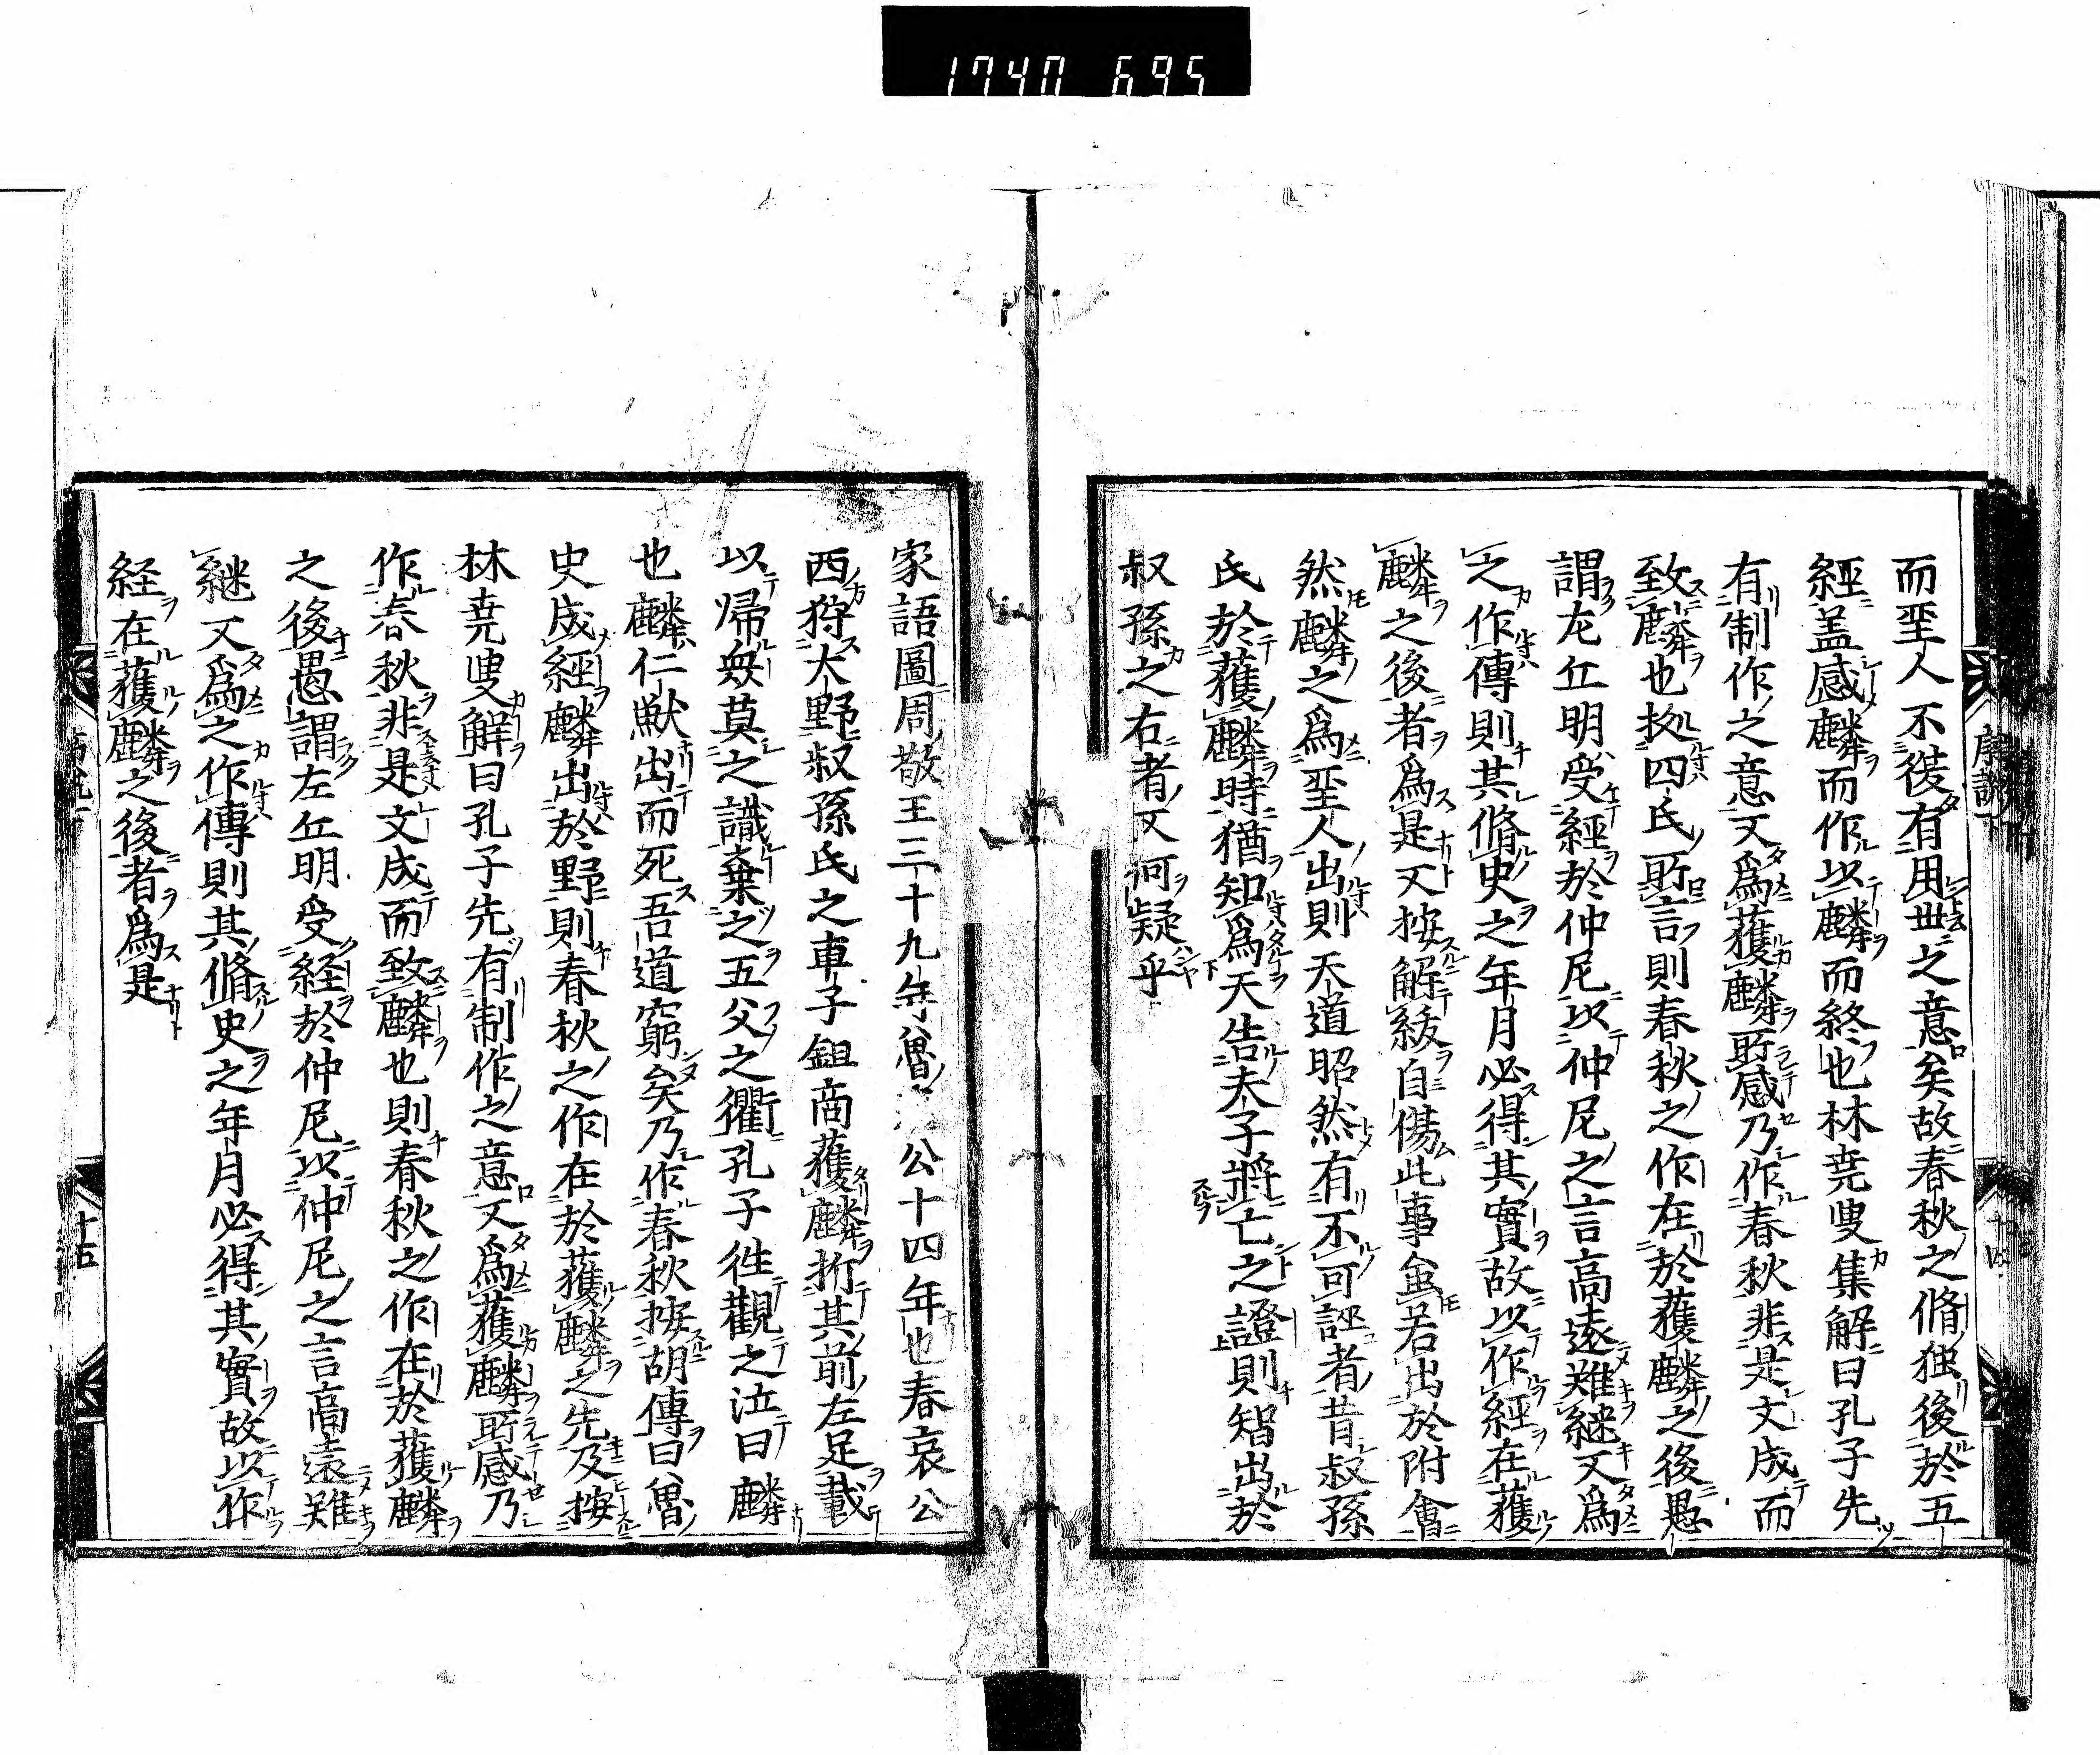 1740 695
而聖人不復有用世之意矣故春秋之脩独後於五
經盖感麟而作以麟而終也林尭叟集解曰孔子先
有制作之意又為獲麟所感乃作春秋非是文成而
致麟也拠四氏所言則春秋之作在於獲麟之後愚
謂左丘明受經於仲尼以仲尼之言高遠難継又為
之作傳則其脩史之年月必得其實故以作經在獲
麟之後者為是又按解紱自傷此事
若出於附會
然麟之為聖人出則天道昭然有不可誣者昔叔孫
氏於獲麟時猶知為天告夫子將亡之證則智出於
叔孫之右者又何疑乎
家語圖周敬王三十九年魯
公十四年也春哀公
西狩大野叔孫氏之車子鉏商獲麟折其前左足載
以帰毎莫之識棄之五父之衢孔子徃觀之泣曰麟
也麟仁獣出而死吾道窮矣乃作春秋按胡傳曰魯
史成經麟出於野則春秋之作在於獲麟之先及按
林尭叟解曰孔子先有制作之意又為獲麟所感乃
作春秋非是文成而致麟也則春秋之作在於獲麟
之後愚謂左丘明受経於仲尼以仲尼之言高遠難
継又為之作傳則其脩史之年月必得其實故以作
経在獲麟之後者為是
十五